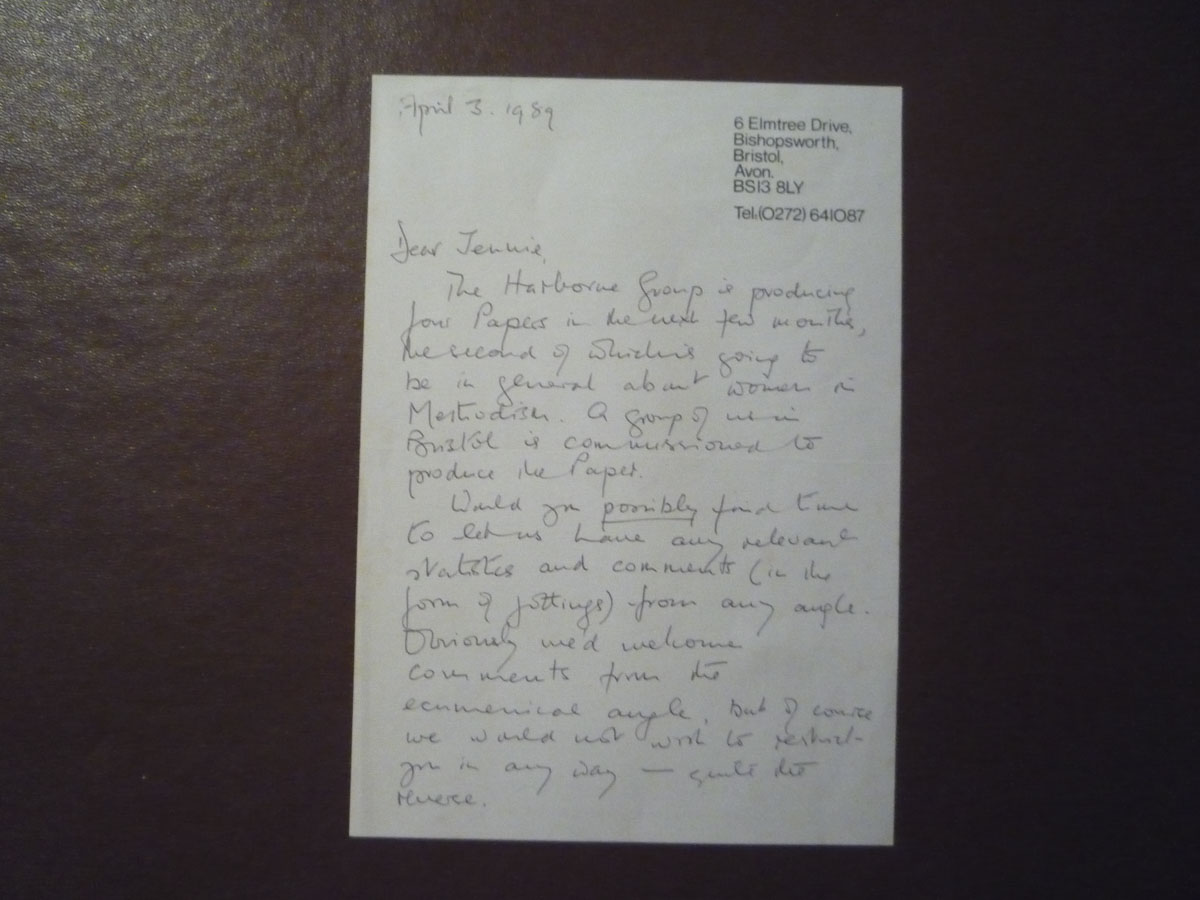 April 3. 1989
6 Elmtree Drive,
Bishopsworth,
Bristol,
Avon.
BS13 8LY
Tel:(0272) 641087
Dear Jennie,
The Harborne Group is producing
four Papers in the next few months,
the second of which is going to
be in general about women in
Methodism. A group of us in
Bristol is commissioned to
produce the Paper.
Would you possibly find time
to let us have any relevant
statistics and comments (in the
form of jottings) from any angle.
Obviously we'd welcome
comments from the
ecumenical angle, but of course
we would not wish to restrict
you in any way — quite the
reverse.